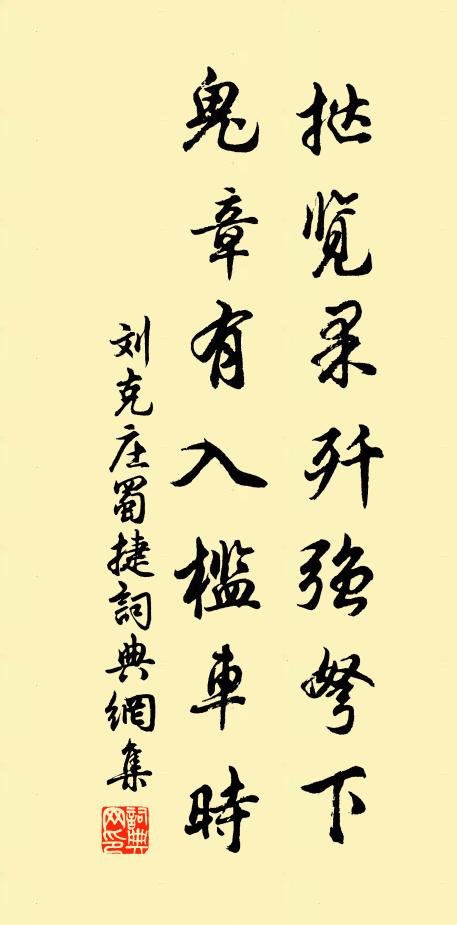 挞览果歼强弩下
鬼章有入槛車時
刘克庄蜀捷詞典網集
詞典网印